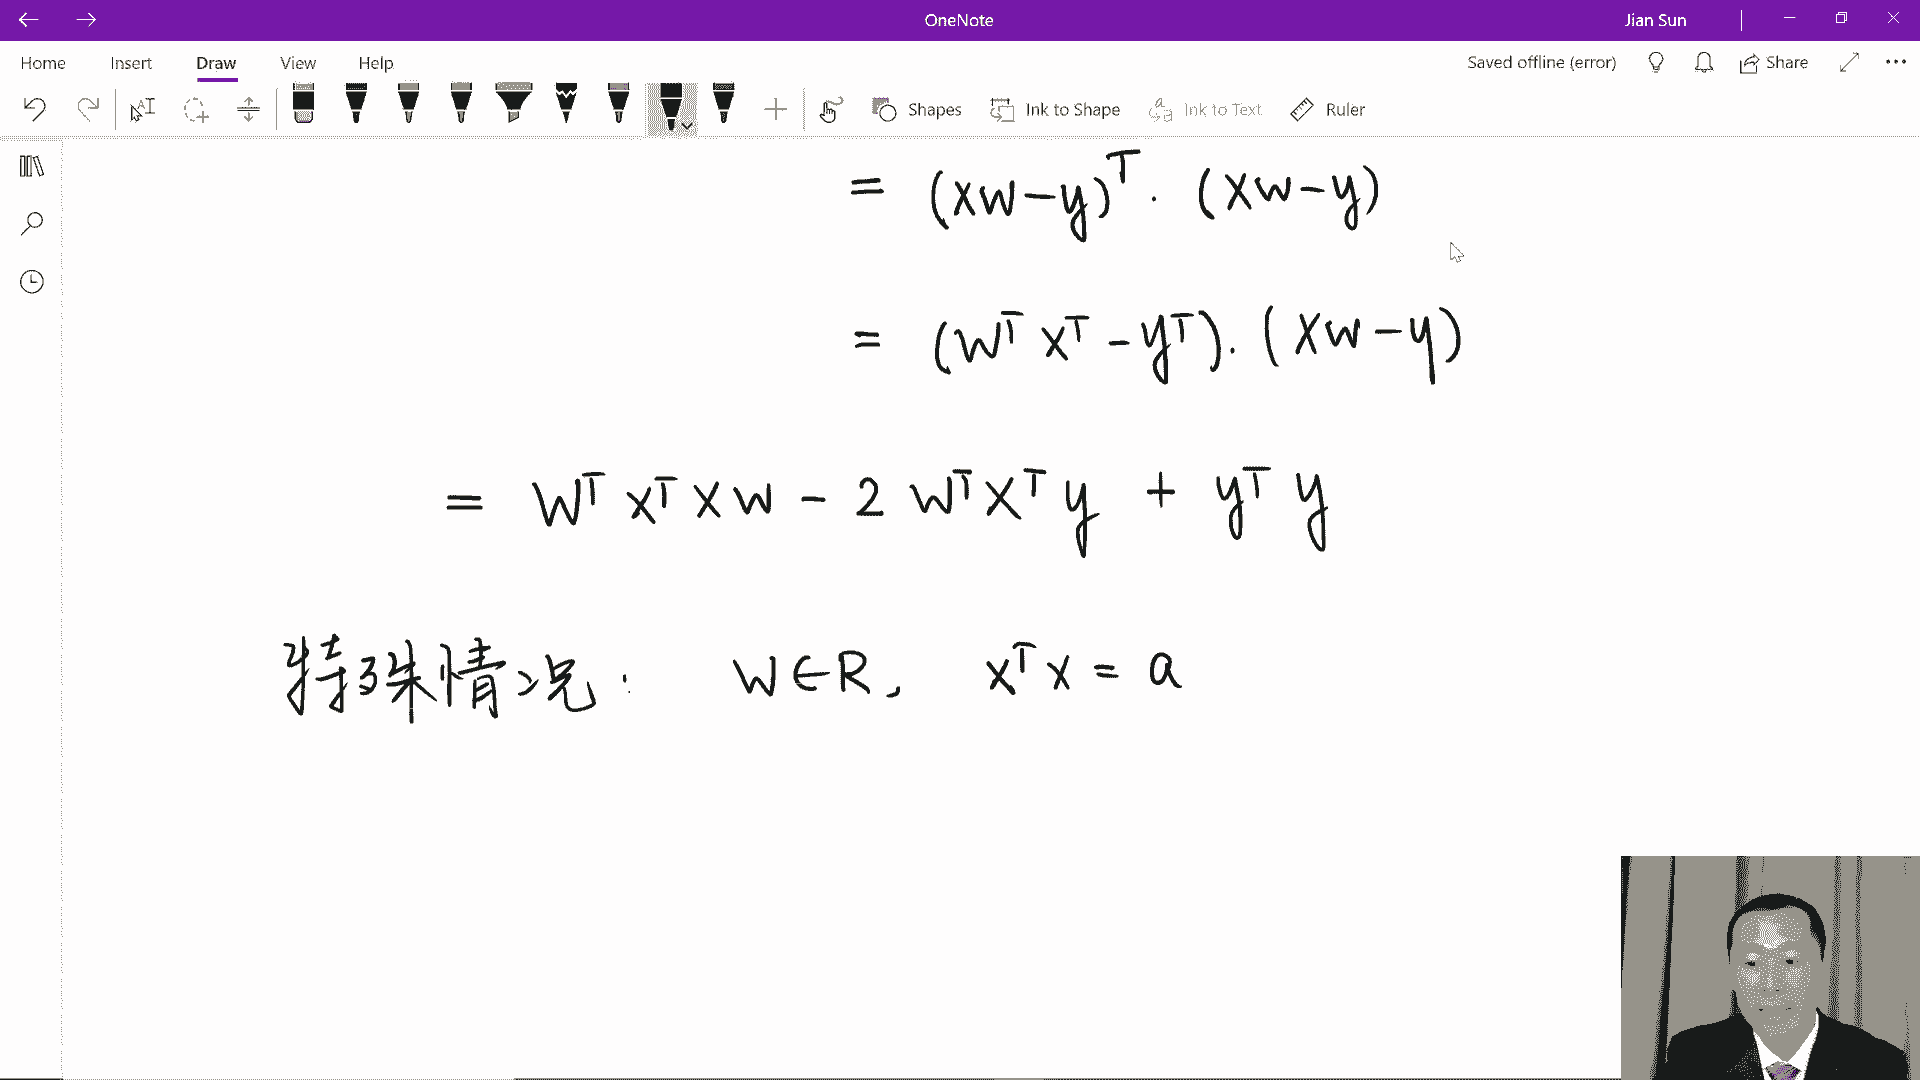 OneNote
Jian Sun
Home Insert Draw View Help
Saved offline (error) Share
Shapes Ink to Shape Ink to Text Ruler
= (XW-y)ᵀ · (XW-y)
= (Wᵀ Xᵀ - yᵀ) · (XW-y)
= Wᵀ Xᵀ X W - 2 Wᵀ Xᵀ y + yᵀ y
特殊情况: W∈R, Xᵀ X = a